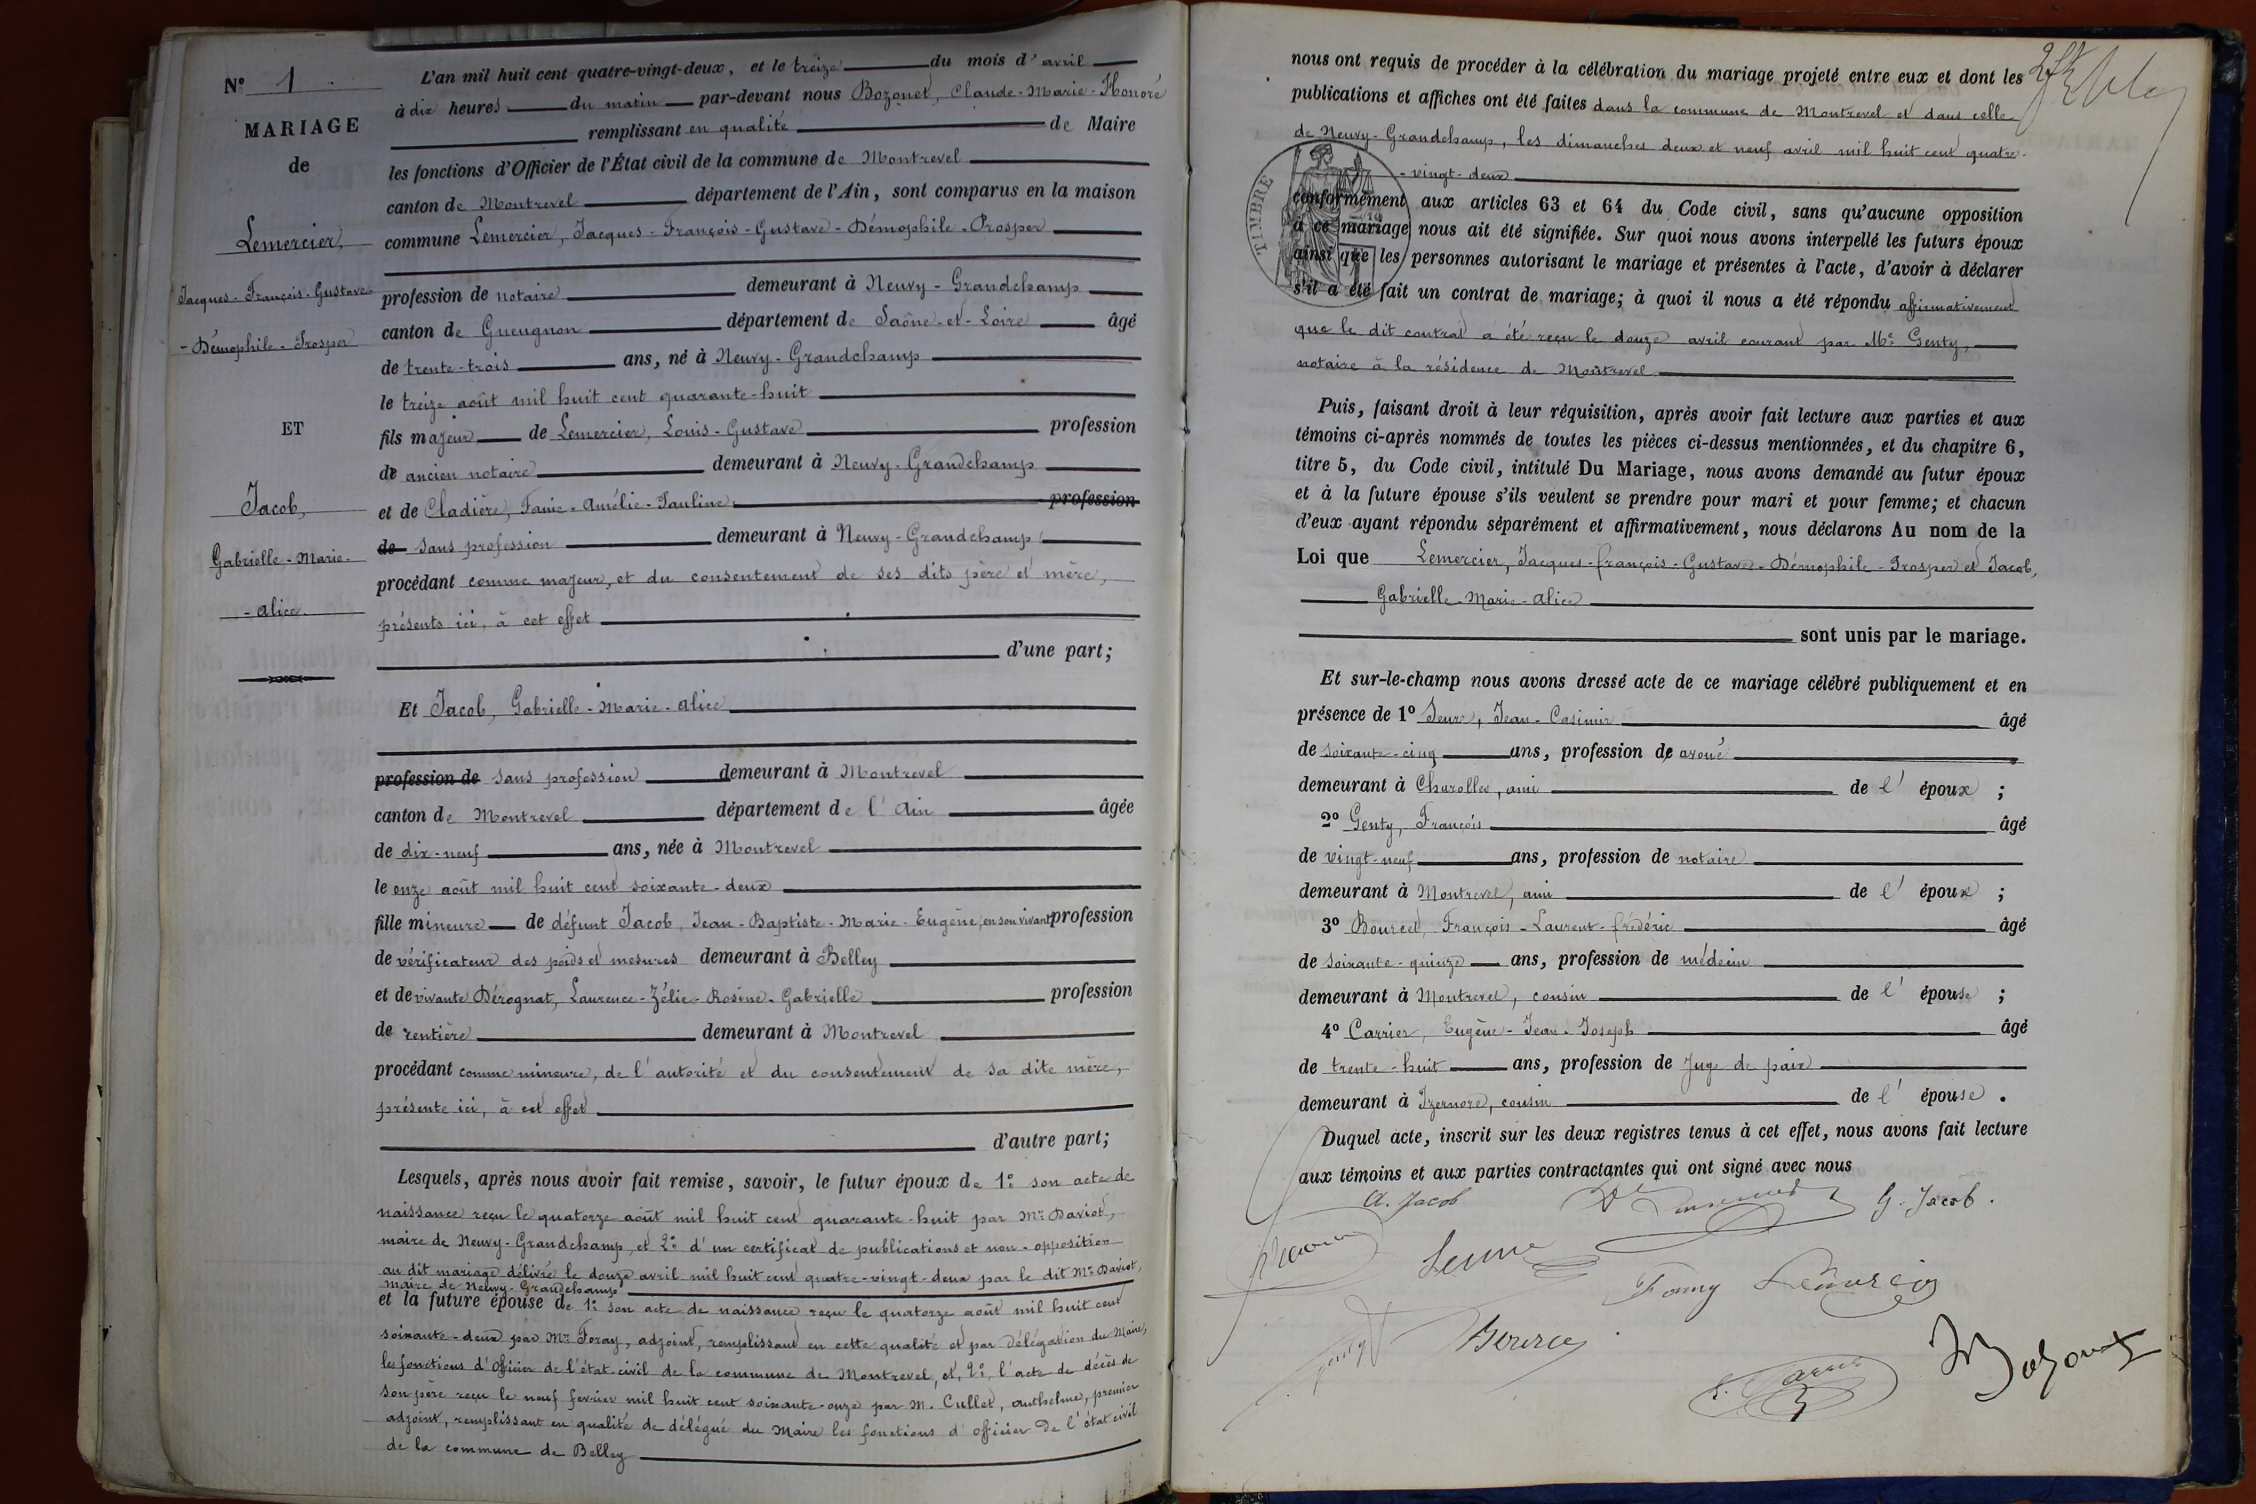 N° 1
MARIAGE
de
Lemercier,
Jacques-François-Gustave
-Démophile-Prosper
ET
Jacob,
Gabrielle-Marie-
-Alice
L'an mil huit cent quatre-vingt-deux, et le treize du mois d'avril
à dix heures du matin par-devant nous Bozonet, Claude-Marie-Honoré
remplissant en qualité de Maire
les fonctions d'Officier de l'État civil de la commune de Montrevel
canton de Montrevel département de l'Ain, sont comparus en la maison
commune Lemercier, Jacques-François-Gustave-Démophile-Prosper
profession de notaire demeurant à Neuvy-Grandchamp
canton de Gueugnon département de Saône-et-Loire âgé
de trente-trois ans, né à Neuvy-Grandchamp
le treize août mil huit cent quarante-huit
fils majeur de Lemercier, Louis-Gustave profession
de ancien notaire demeurant à Neuvy-Grandchamp
et de Cladière, Fanie-Amélie-Pauline profession
de sans profession demeurant à Neuvy-Grandchamp
procédant comme majeur, et du consentement de ses dits père et mère,
présents ici, à cet effet
d'une part;
Et Jacob, Gabrielle-Marie-Alice
profession de sans profession demeurant à Montrevel
canton de Montrevel département de l'Ain âgée
de dix-neuf ans, née à Montrevel
le onze août mil huit cent soixante-deux
fille mineure de défunt Jacob, Jean-Baptiste-Marie-Eugène, en son vivant profession
de vérificateur des poids et mesures demeurant à Belley
et de vivante Dérognat, Laurence-Zélie-Rosine-Gabrielle profession
de rentière demeurant à Montrevel
procédant comme mineure, de l'autorité et du consentement de sa dite mère,
présente ici, à cet effet
d'autre part;
Lesquels, après nous avoir fait remise, savoir, le futur époux de 1° son acte de
naissance reçu le quatorze août mil huit cent quarante-huit par Mr Daviot,
maire de Neuvy-Grandchamp, et 2° d'un certificat de publications et non-opposition
au dit mariage délivré le douze avril mil huit cent quatre-vingt-deux par le dit Mr Daviot,
maire de Neuvy-Grandchamp
et la future épouse de 1° son acte de naissance reçu le quatorze août mil huit cent
soixante-deux par Mr Foray, adjoint, remplissant en cette qualité et par délégation du Maire,
les fonctions d'officier de l'état-civil de la commune de Montrevel, et, 2°, l'acte de décès de
son père reçu le neuf fevrier mil huit cent soixante-onze par M. Cullet, Anthelme, premier
adjoint, remplissant en qualité de délégué du Maire les fonctions d'officier de l'état civil
de la commune de Belley
nous ont requis de procéder à la célébration du mariage projeté entre eux et dont les
publications et affiches ont été faites dans la commune de Montrevel et dans celle
de Neuvy-Grandchamp, les dimanches deux et neuf avril mil huit cent quatre-
-vingt-deux
TIMBRE
conformément aux articles 63 et 64 du Code civil, sans qu'aucune opposition
à ce mariage nous ait été signifiée. Sur quoi nous avons interpellé les futurs époux
ainsi que les personnes autorisant le mariage et présentes à l'acte, d'avoir à déclarer
s'il a été fait un contrat de mariage; à quoi il nous a été répondu affirmativement
que le dit contrat a été reçu le douze avril courant par Me Genty,
notaire à la résidence de Montrevel
Puis, faisant droit à leur réquisition, après avoir fait lecture aux parties et aux
témoins ci-après nommés de toutes les pièces ci-dessus mentionnées, et du chapitre 6,
titre 5, du Code civil, intitulé Du Mariage, nous avons demandé au futur époux
et à la future épouse s'ils veulent se prendre pour mari et pour femme; et chacun
d'eux ayant répondu séparément et affirmativement, nous déclarons Au nom de la
Loi que Lemercier, Jacques-françois-Gustave-Démophile-Prosper et Jacob,
Gabrielle-Marie-Alice
sont unis par le mariage.
Et sur-le-champ nous avons dressé acte de ce mariage célébré publiquement et en
présence de 1° Seurre, Jean-Casimir âgé
de soixante-cinq ans, profession de avoué
demeurant à Charolles, ami de l'époux ;
2° Genty, François âgé
de vingt-neuf ans, profession de notaire
demeurant à Montrevel, ami de l'époux ;
3° Bourcet, François-Laurent-frédéric âgé
de soixante-quinze ans, profession de médecin
demeurant à Montrevel, cousin de l'épouse ;
4° Carrier, Eugène-Jean-Joseph âgé
de trente-huit ans, profession de Juge de paix
demeurant à Izernore, cousin de l'épouse .
Duquel acte, inscrit sur les deux registres tenus à cet effet, nous avons fait lecture
aux témoins et aux parties contractantes qui ont signé avec nous
A. Jacob
G. Jacob.
Seurre
Fanny Lemercier
Genty
Bourcet
E. Carrier
Bozonet